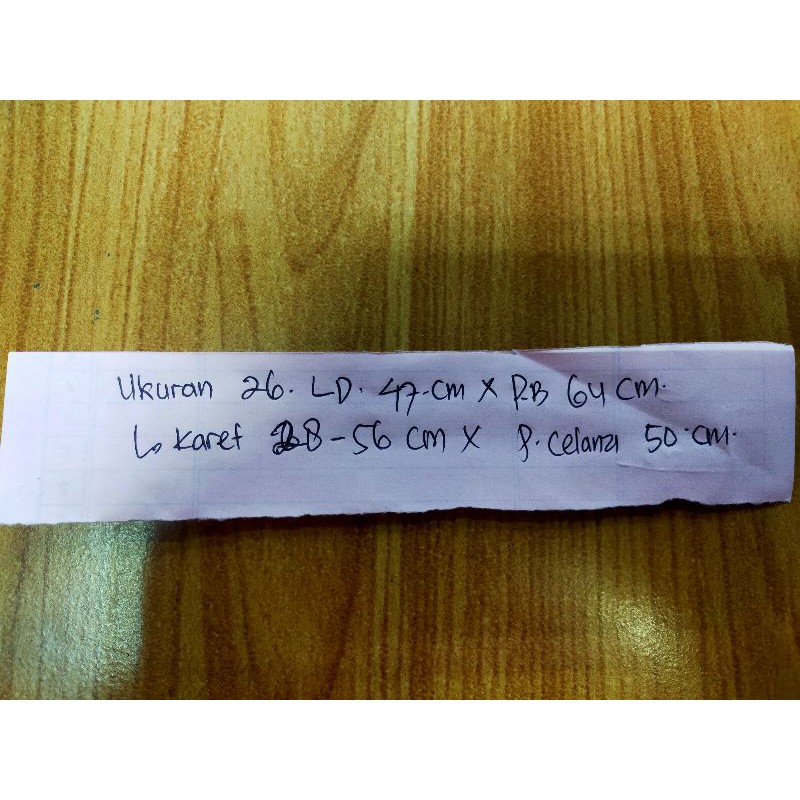 Ukuran 26. LD. 47.cm X P.B 64 cm.
L. Karet 28-56 cm X P. Celana 50 cm.